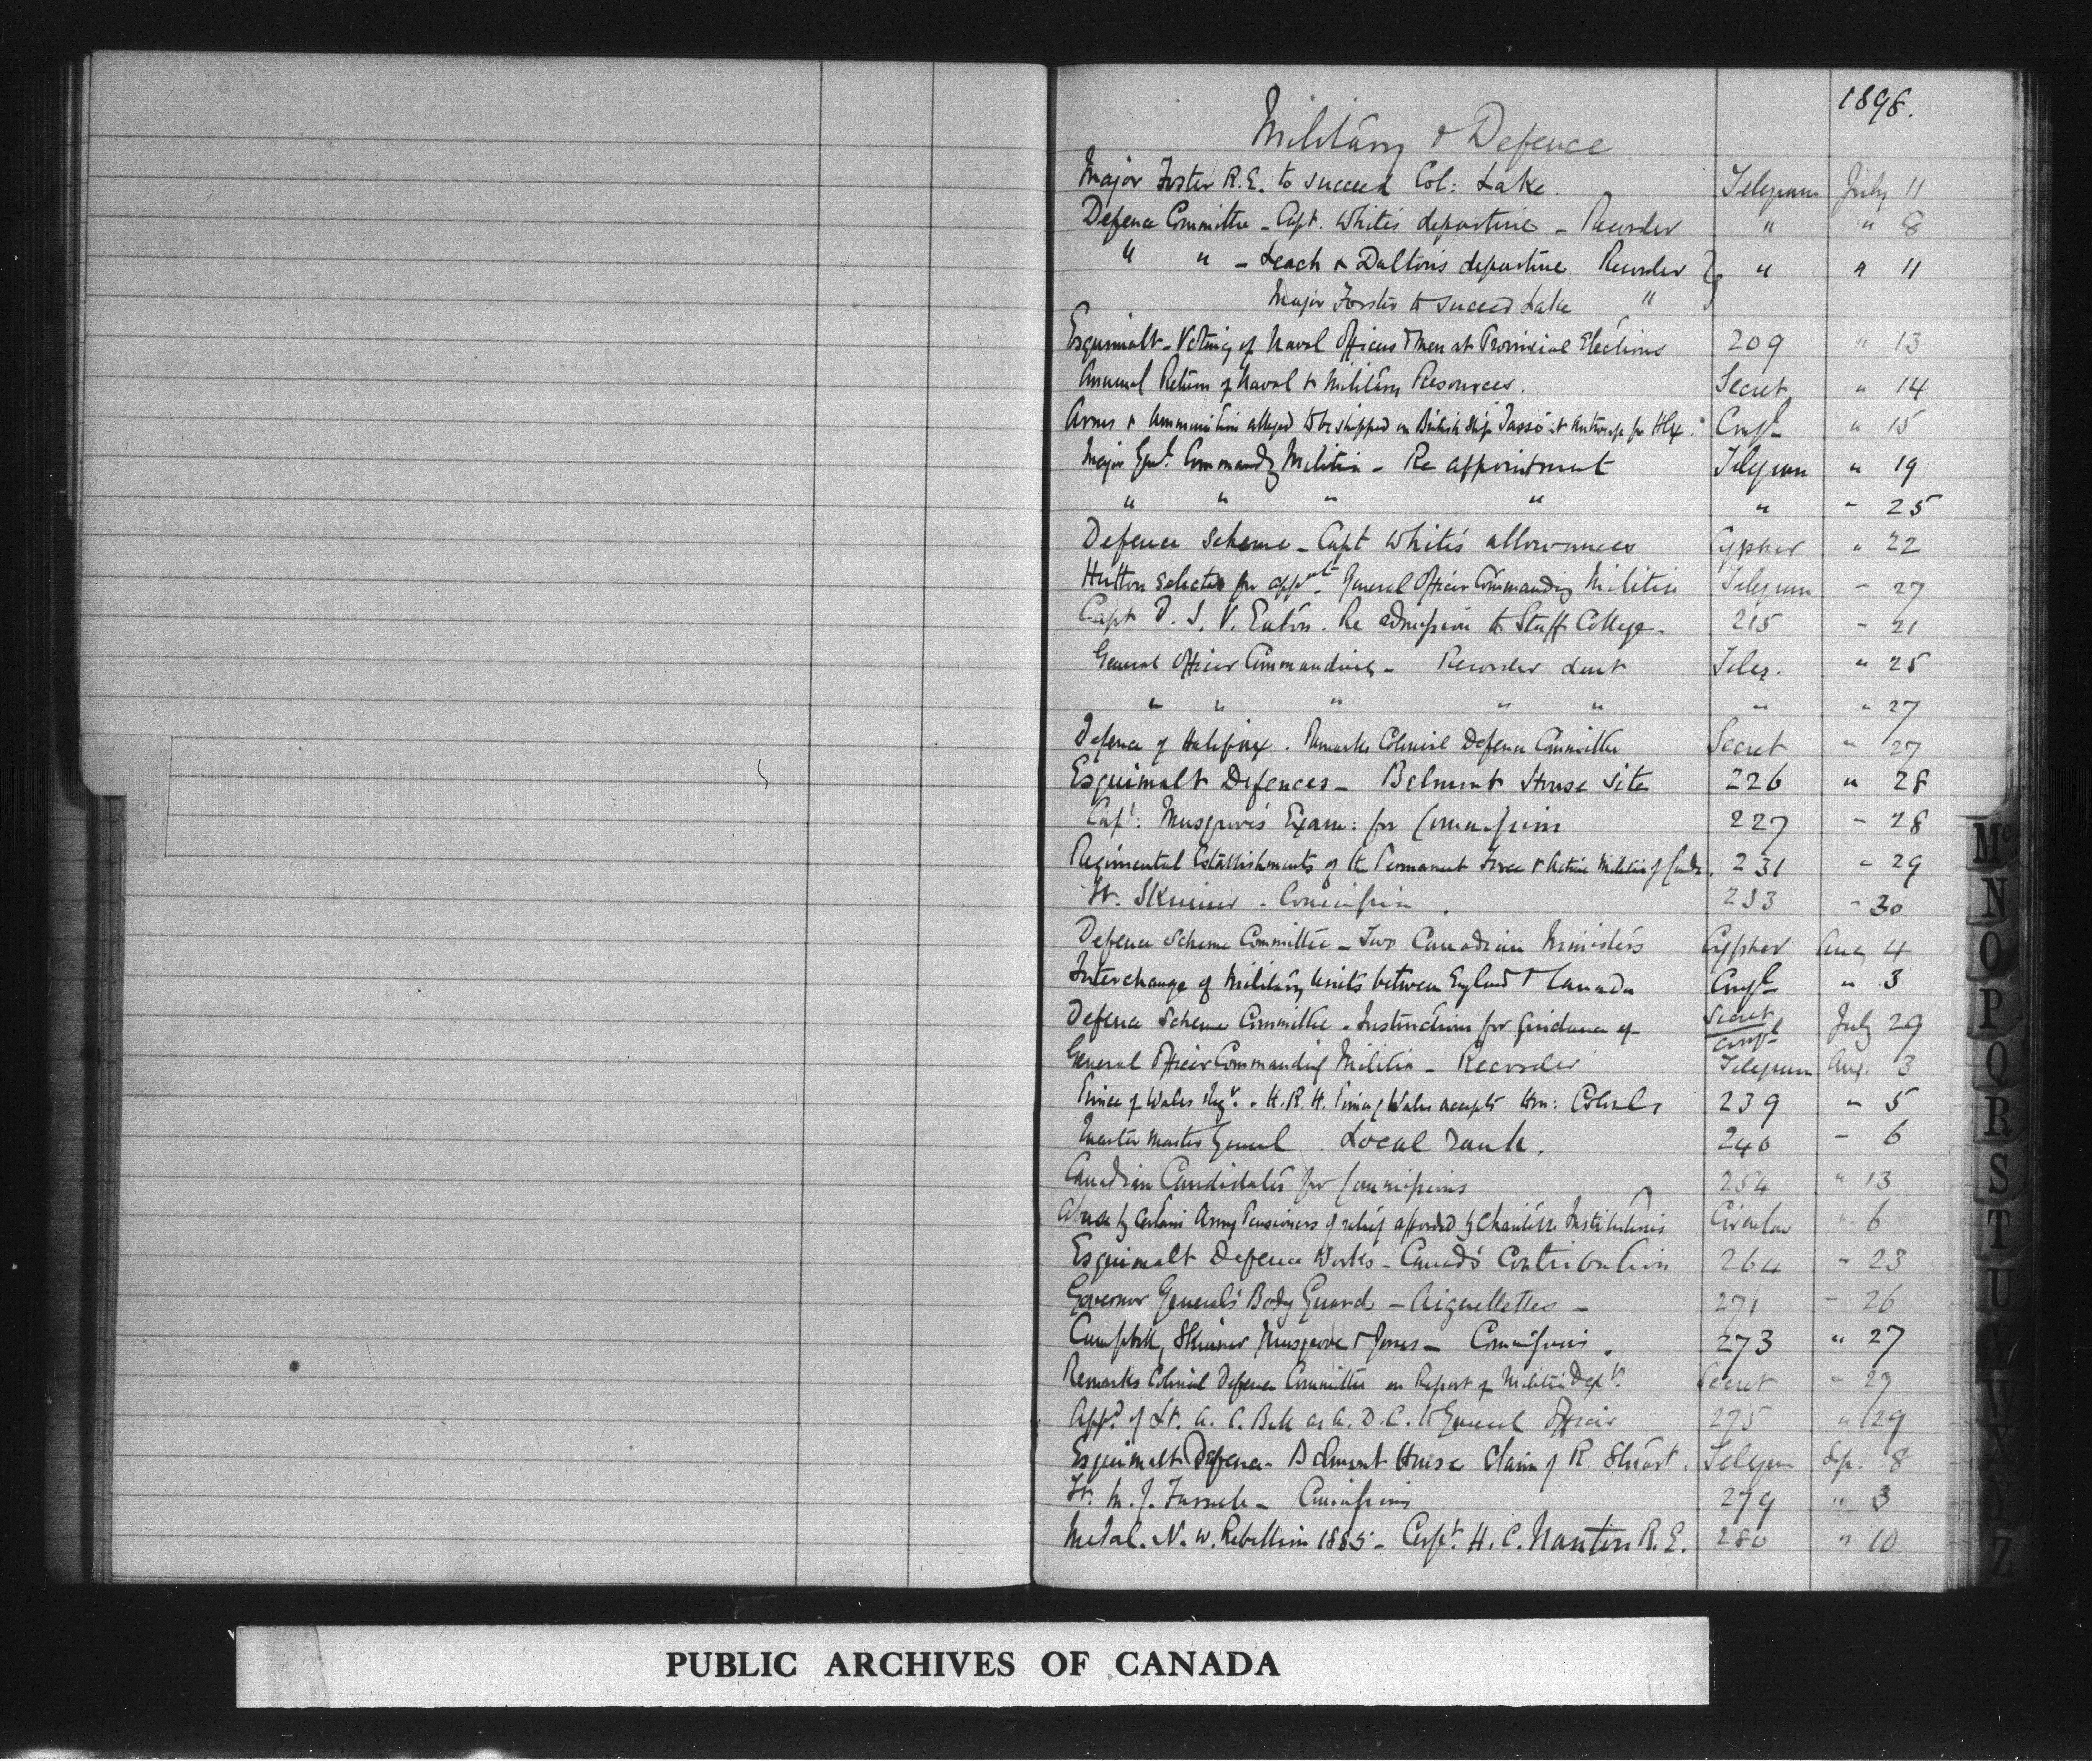 1898.
Military & Defence
Major Foster R.E. to succeed Col: Lake. Telegram July 11
Defence Committee - Capt. White's departure - Reuorder " " 8
" " - Leach & Dalton's departure Reuorder } " " 11
Major Forster to succeed Lake "
Esquimalt - Voting of Naval Officers & Men at Provincial Elections 209 " 13
Annual Return of Naval & Military Resources. Secret " 14
Arms & Ammunition alleged to be shipped on British Ship "Tasso" at Antwerp for Hfx. Confl " 15
Major Genl. Commandg Militia - Re appointment Telegram " 19
" " " " " " 25
Defence Scheme - Capt White's allowances Cypher " 22
Hutton selected for appmt General Officer Commanding Militia Telegram " 27
Capt D. I. V. Eaton. Re admission to Staff College. 215 " 21
General Officer Commanding - Reuorder sent Teleg. " 25
" " " " " " " 27
Defence of Halifax. Remarks Colonial Defence Committee Secret " 27
Esquimalt Defences - Belmont House Site 226 " 28
Capt: Musgrove's Exam: for Commission 227 " 28
Regimental Establishments of the Permanent Force & Active Militia of Canda. 231 " 29
Lt. Skinner - Commission 233 " 30
Defence Scheme Committee - Two Canadian Ministers Cypher Aug 4
Interchange of Military Units between England & Canada Confl " 3
Defence Scheme Committee - Instructions for Guidance of Secret July 29
Confl
General Officer Commanding Militia - Recorder Telegram Aug. 3
Prince of Wales Regt. - H.R.H. Prince of Wales accepts Hon: Colonelcy 239 " 5
Quarter Master General Local rank. 240 " 6
Canadian Candidates for Commissions 254 " 13
Abuse by Certain Army Pensioners of relief afforded by Charitble Institutions Circular " 6
Esquimalt Defence Works - Canada's Contribution 264 " 23
Governor General's Body Guard - Aiguellettes - 271 " 26
Campbell, Skinner Musgrove & Jones - Commissions. 273 " 27
Remarks Colonial Defence Committee on Report of Militia Dept. Secret " 27
Appt of Lt. A. C. Bell as A.D.C. to General Officer 275 " 29
Esquimalt Defence - Belmont House Claim of R. Stuart. Telegram Sep. 8
Lt. M. J. - Commissions 279 " 3
Medal. N. W. Rebellion 1885 - Capt. H. C. Nanton R.E. 280 " 10
Mc
N
O
P
Q
R
S
T
U
V
W
X
Y
Z
PUBLIC ARCHIVES OF CANADA